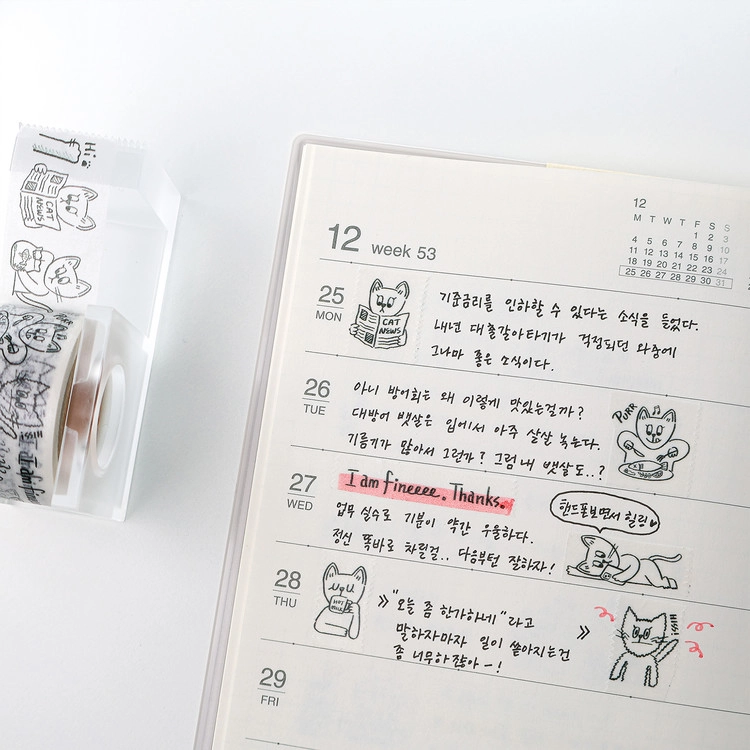 Hi
CAT
NEWS
PURR
12 week 53
12
M T W T F S S
1 2 3
4 5 6 7 8 9 10
11 12 13 14 15 16 17
18 19 20 21 22 23 24
25 26 27 28 29 30 31
25
MON
CAT
NEWS
기준금리를 인하할 수 있다는 소식을 들었다.
내년 대출갈아타기가 걱정되던 와중에
그나마 좋은 소식이다.
26
TUE
아니 방어회는 왜 이렇게 맛있는걸까?
대방어 뱃살은 입에서 아주 살살 녹는다.
기름기가 많아서 그런가? 그럼 내 뱃살도..?
PURR
27
WED
I am fineeee. Thanks.
업무 실수로 기분이 약간 우울하다.
정신 똑바로 차릴걸.. 다음부턴 잘하자!
핸드폰보면서 힐링♡
28
THU
UgU
HOT
MILK
»"오늘 좀 한가하네"라고
말하자마자 일이 쏟아지는건 »
좀 너무하잖아-!
HISS!
29
FRI